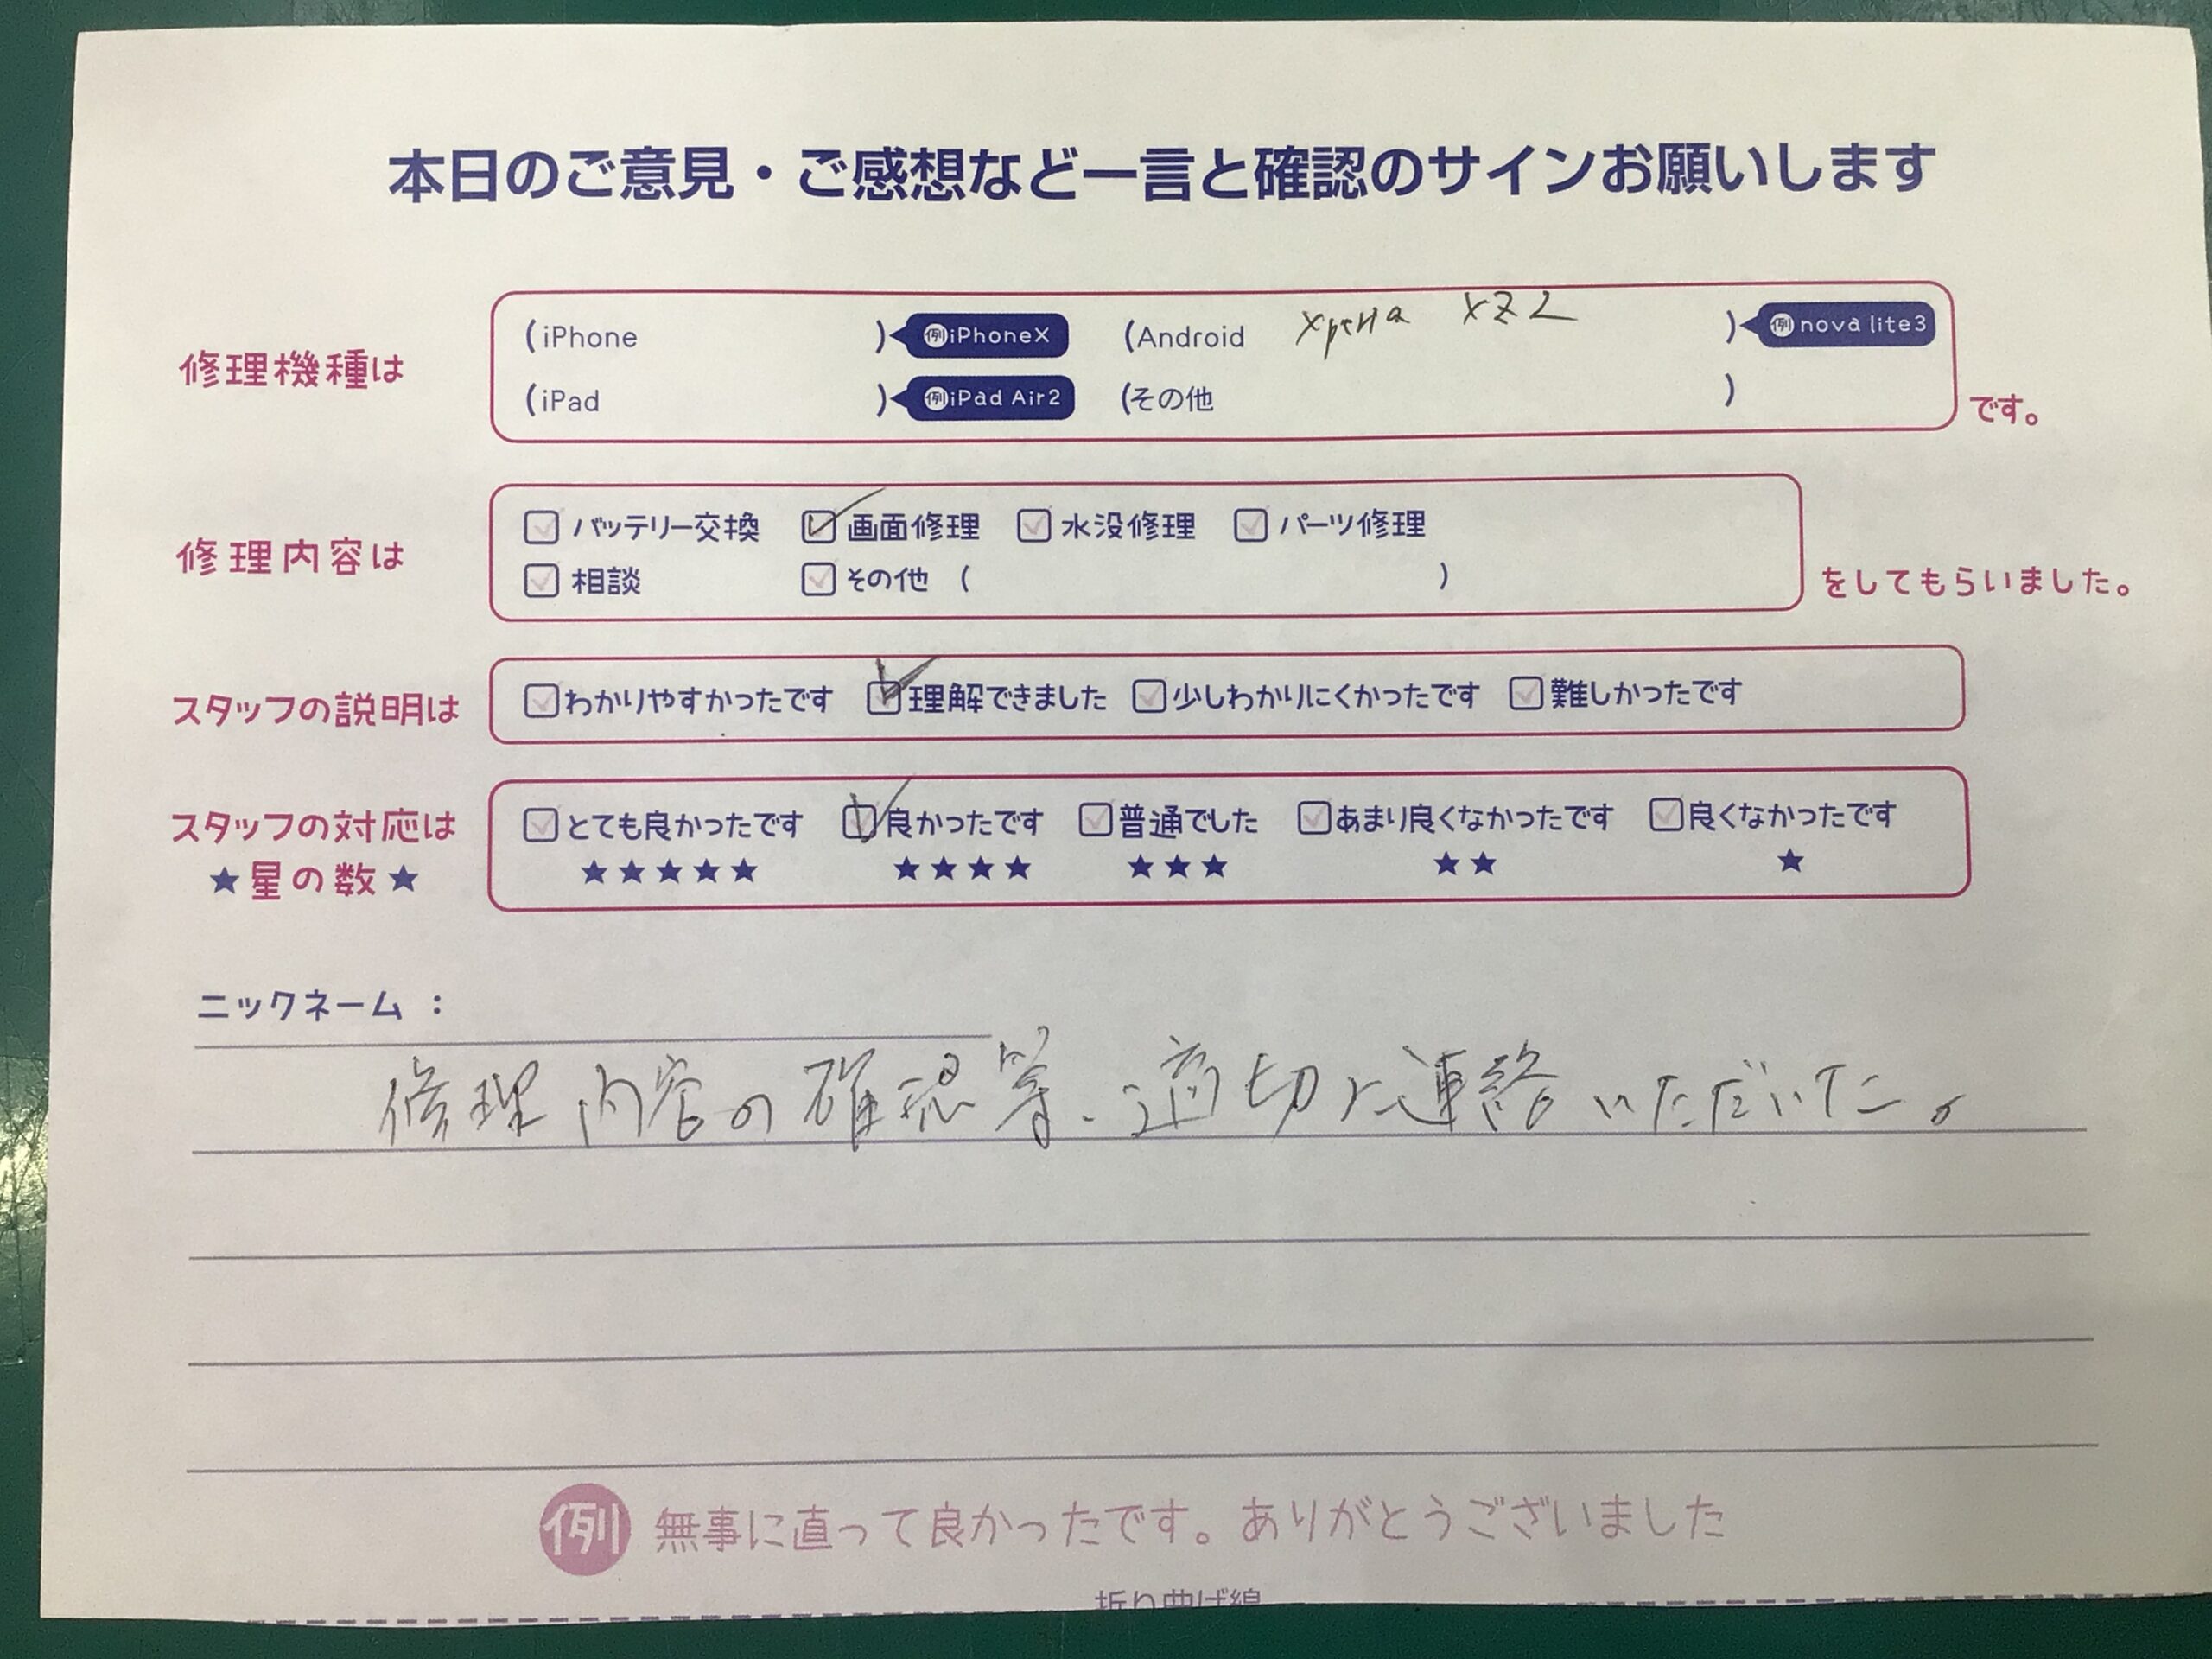 本日のご意見・ご感想など一言と確認のサインお願いします
修理機種は
(iPhone ) 例iPhoneX (Android Xperia XZ2 ) 例nova lite3
(iPad ) 例iPad Air2 (その他 )
です。
修理内容は
バッテリー交換 画面修理 水没修理 パーツ修理
相談 その他 ( )
をしてもらいました。
スタッフの説明は
わかりやすかったです 理解できました 少しわかりにくかったです 難しかったです
スタッフの対応は
★星の数★
とても良かったです 良かったです 普通でした あまり良くなかったです 良くなかったです
★★★★★ ★★★★ ★★★ ★★ ★
ニックネーム :
修理内容の確認等、適切に連絡いただいた。
例 無事に直って良かったです。ありがとうございました
折り曲げ線